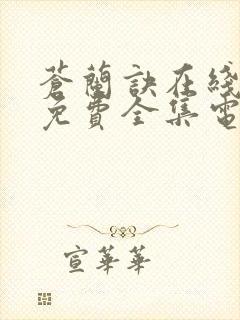 蒼蘭訣在綫
免費全集電
宣華華